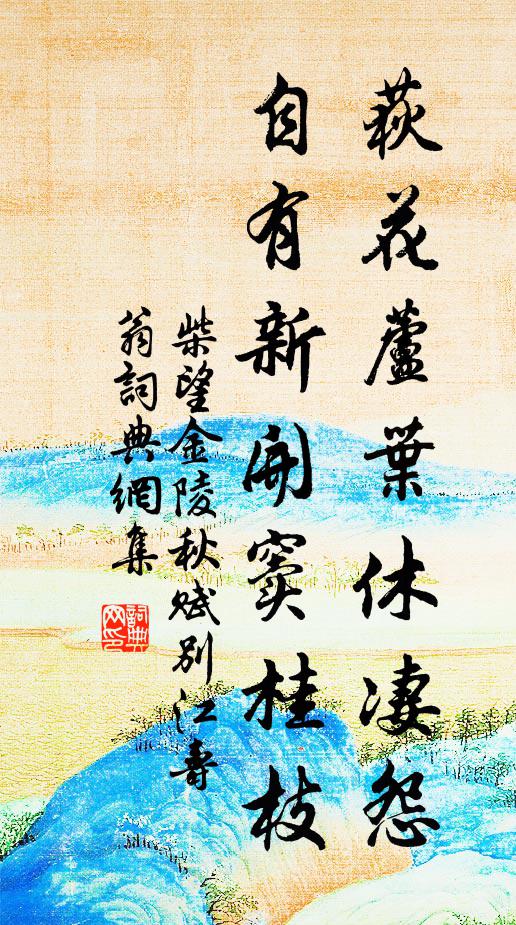 荻花蘆葉休淒怨
自有新開竇桂枝
柴望金陵秋賦別江壽
翁詞典網集
詞典网印